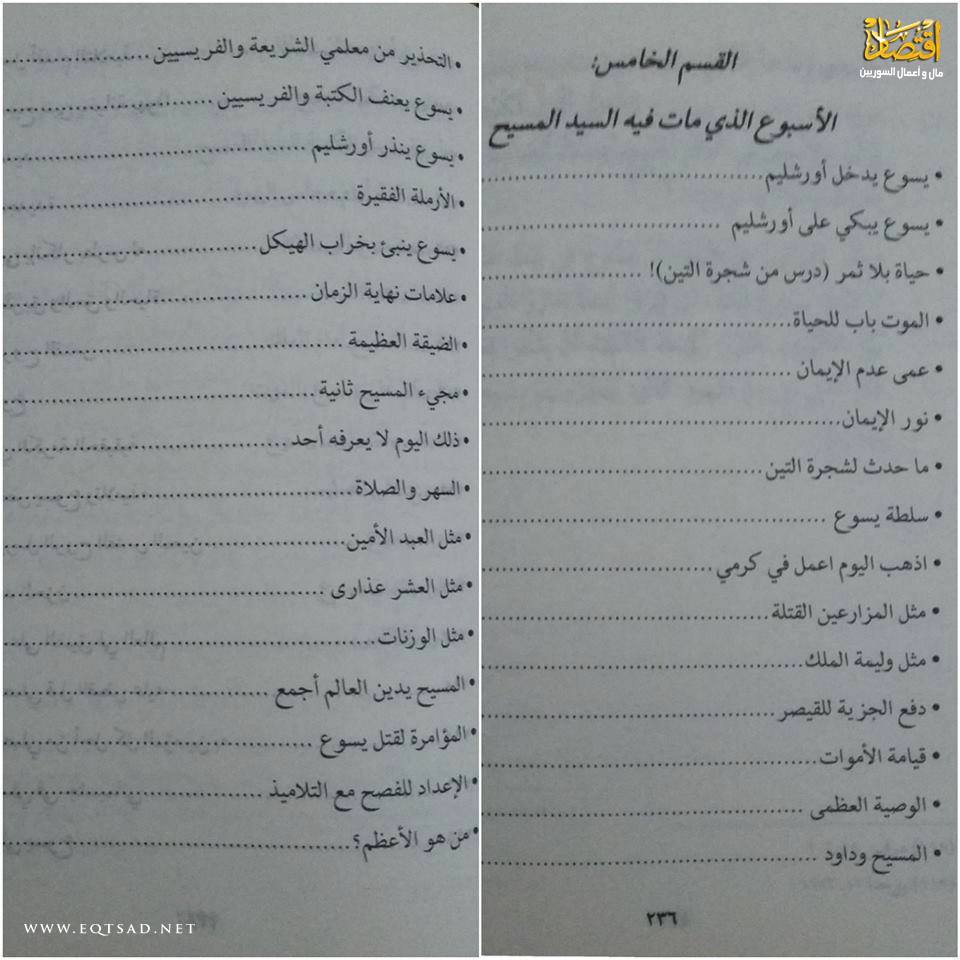 اقتصاد
مال و أعمال السوريين
القسم الخامس:
الأسبوع الذي مات فيه السيد المسيح
• يسوع يدخل أورشليم
• يسوع يبكي على أورشليم
• حياة بلا ثمر (درس من شجرة التين)!
• الموت باب للحياة
• عمى عدم الإيمان
• نور الإيمان
• ما حدث لشجرة التين
• سلطة يسوع
• اذهب اليوم اعمل في كرمي
• مثل المزارعين القتلة
• مثل وليمة الملك
• دفع الجزية للقيصر
• قيامة الأموات
• الوصية العظمى
• المسيح وداود
٢٣٦
• التحذير من معلمي الشريعة والفريسيين
• يسوع يعنف الكتبة والفريسيين
• يسوع ينذر أورشليم
• الأرملة الفقيرة
• يسوع ينبئ بخراب الهيكل
• علامات نهاية الزمان
• الضيقة العظيمة
• مجيء المسيح ثانية
• ذلك اليوم لا يعرفه أحد
• السهر والصلاة
• مثل العبد الأمين
• مثل العشر عذارى
• مثل الوزنات
• المسيح يدين العالم أجمع
• المؤامرة لقتل يسوع
• الإعداد للفصح مع التلاميذ
• من هو الأعظم؟
WWW.EQTSAD.NET